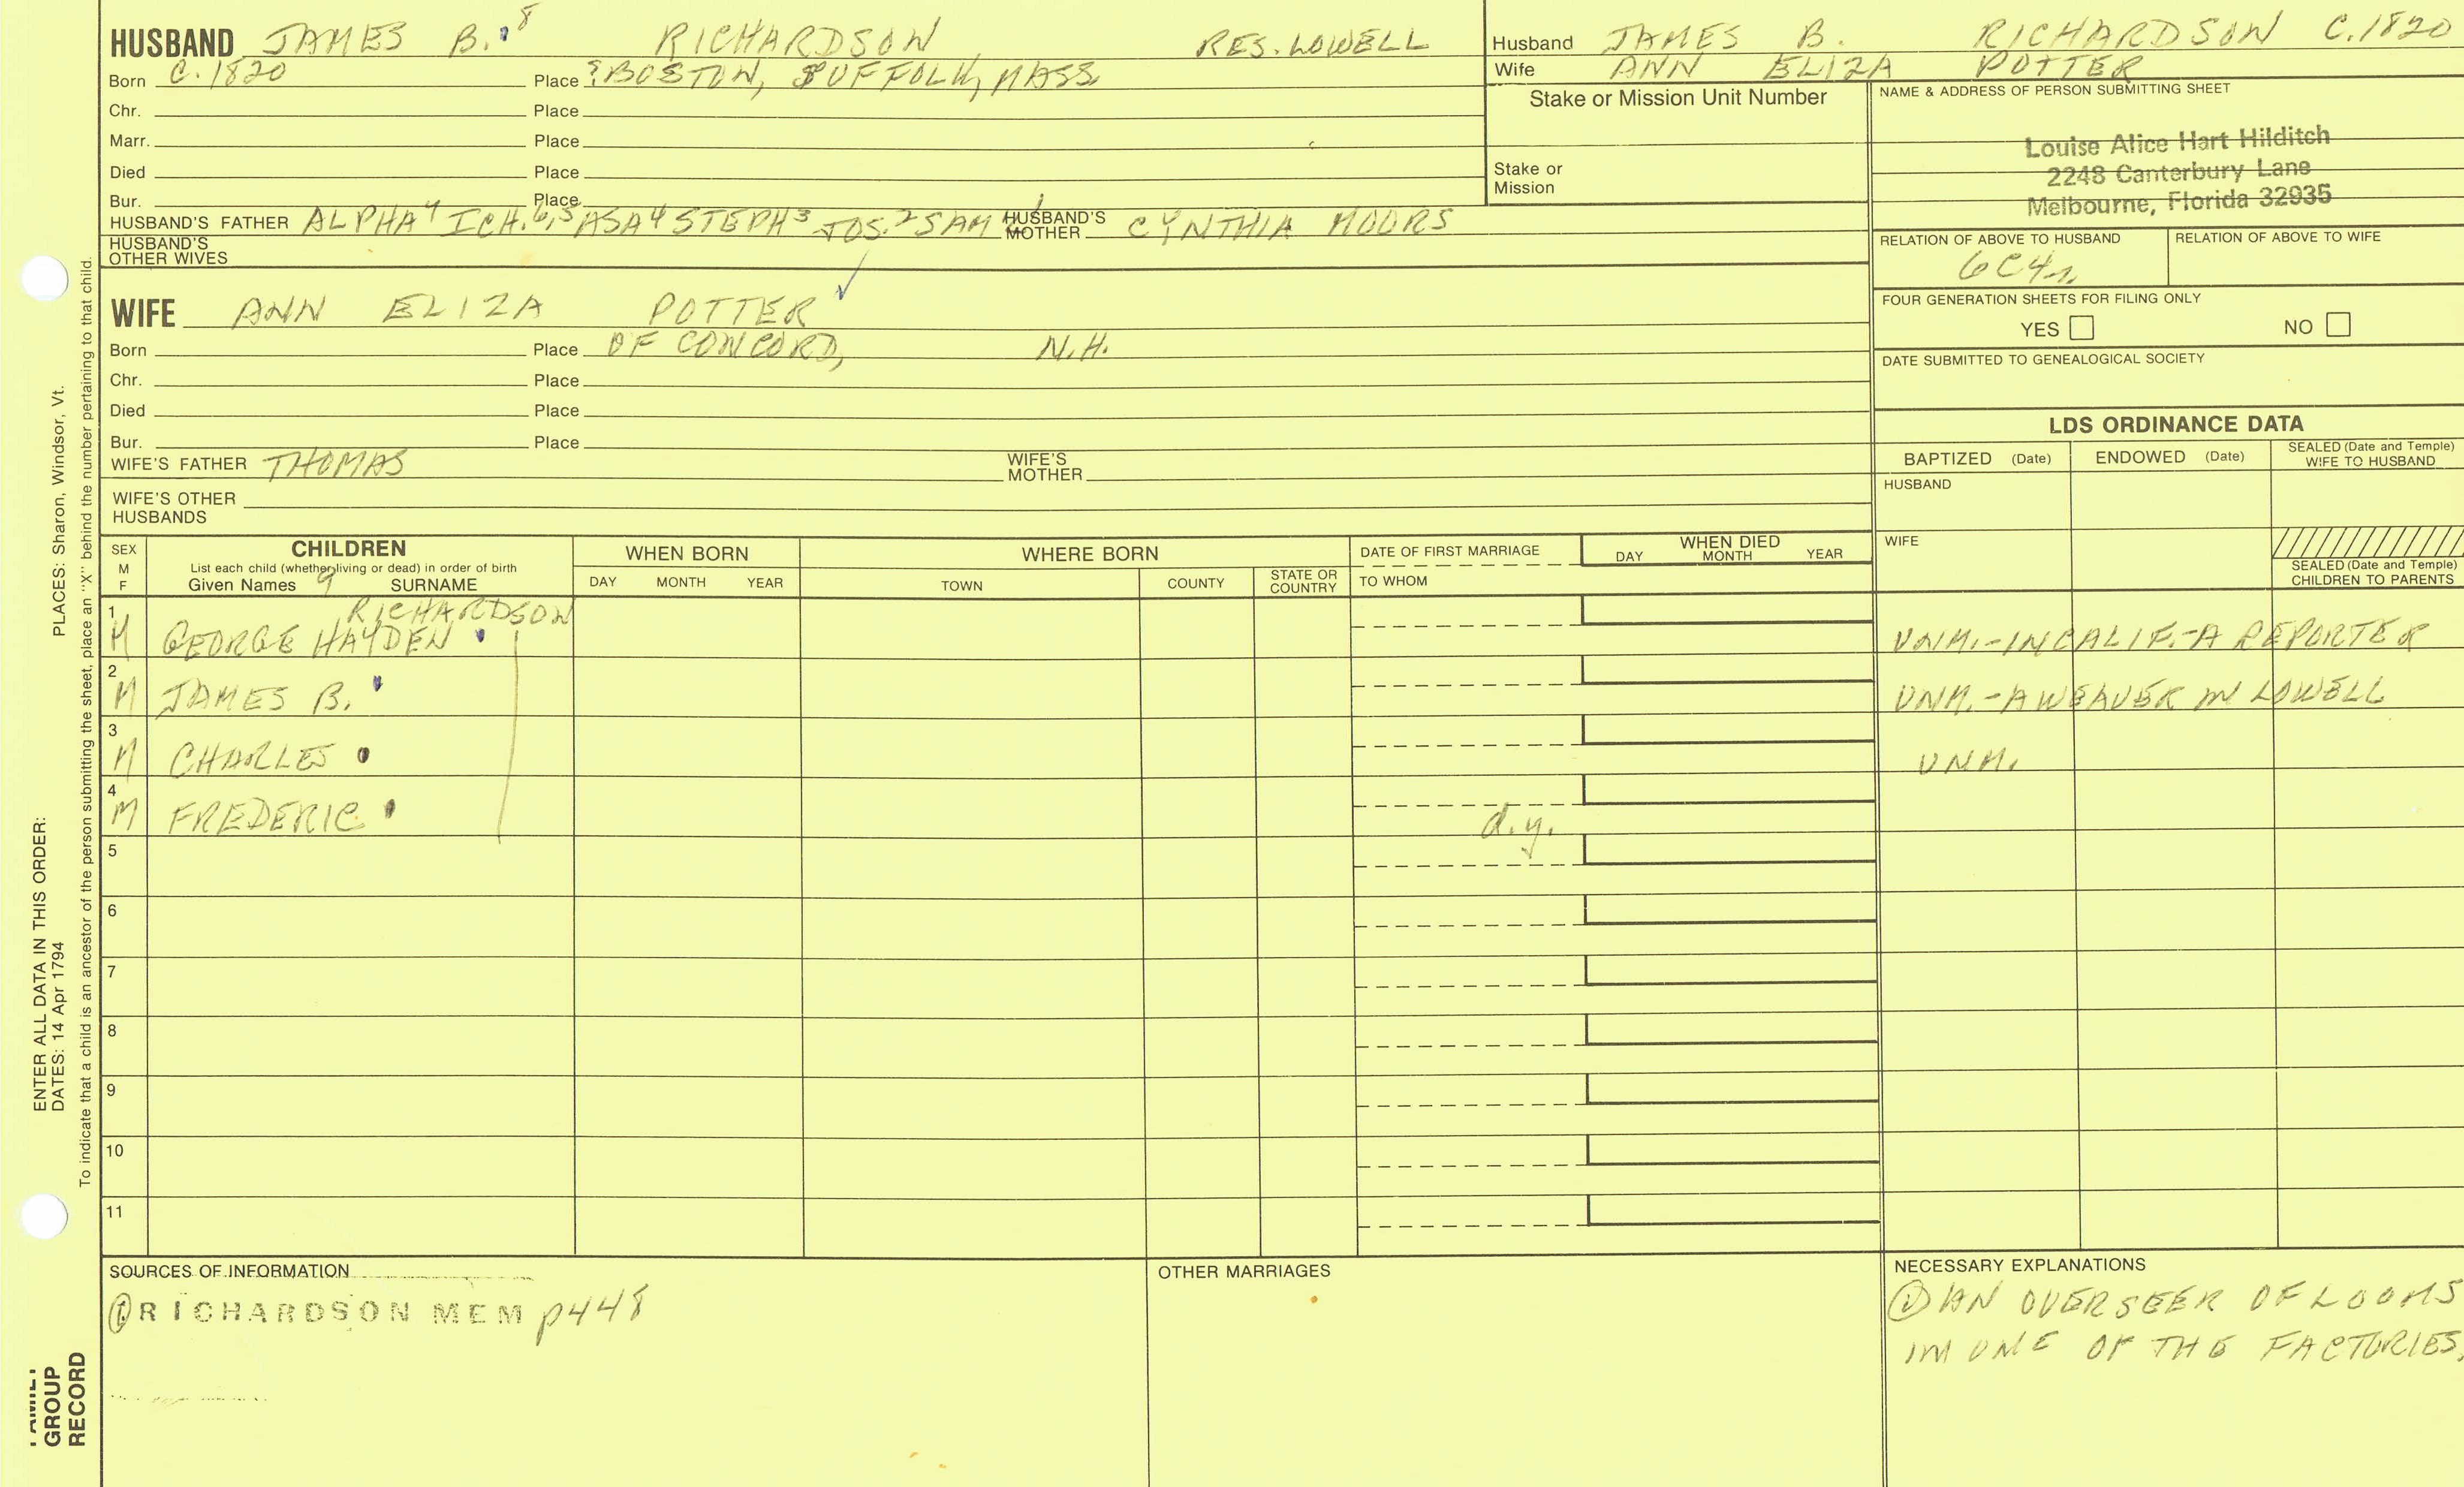 HUSBAND JAMES B. 8 RICHARDSON RES. LOWELL
Born C. 1820 Place ?BOSTON, SUFFOLK, MASS
Chr. Place
Marr. Place
Died Place
Bur. Place
HUSBAND'S FATHER ALPHA 7 ICH. 6,5 ASA 4 STEPH 3 JOS. 2 SAM 1 HUSBAND'S MOTHER CYNTHIA MOORS
HUSBAND'S OTHER WIVES
WIFE ANN ELIZA POTTER
Born Place OF CONCORD, N.H.
Chr. Place
Died Place
Bur. Place
WIFE'S FATHER THOMAS WIFE'S MOTHER
WIFE'S OTHER HUSBANDS
Husband JAMES B. RICHARDSON C.1820
Wife ANN ELIZA POTTER
Stake or Mission Unit Number
Stake or Mission
NAME & ADDRESS OF PERSON SUBMITTING SHEET
Louise Alice Hart Hilditch
2248 Canterbury Lane
Melbourne, Florida 32935
RELATION OF ABOVE TO HUSBAND RELATION OF ABOVE TO WIFE
6C4r
FOUR GENERATION SHEETS FOR FILING ONLY
YES NO
DATE SUBMITTED TO GENEALOGICAL SOCIETY
LDS ORDINANCE DATA
BAPTIZED (Date) ENDOWED (Date) SEALED (Date and Temple) WIFE TO HUSBAND
HUSBAND
WIFE
SEALED (Date and Temple) CHILDREN TO PARENTS
SEX M F
CHILDREN
List each child (whether living or dead) in order of birth
Given Names 9 SURNAME
WHEN BORN
DAY MONTH YEAR
WHERE BORN
TOWN COUNTY STATE OR COUNTRY
DATE OF FIRST MARRIAGE
TO WHOM
WHEN DIED
DAY MONTH YEAR
1 M GEORGE HAYDEN RICHARDSON UNM.-IN CALIF.-A REPORTER
2 M JAMES B. UNM.-A WEAVER IN LOWELL
3 M CHARLES UNM.
4 M FREDERIC d.y.
5
6
7
8
9
10
11
SOURCES OF INFORMATION
① RICHARDSON MEM p448
OTHER MARRIAGES
NECESSARY EXPLANATIONS
① AN OVERSEER OF LOOMS
IN ONE OF THE FACTORIES.
PLACES: Sharon, Windsor, Vt.
ENTER ALL DATA IN THIS ORDER:
DATES: 14 Apr 1794
To indicate that a child is an ancestor of the person submitting the sheet, place an "X" behind the number pertaining to that child.
FAMILY
GROUP
RECORD